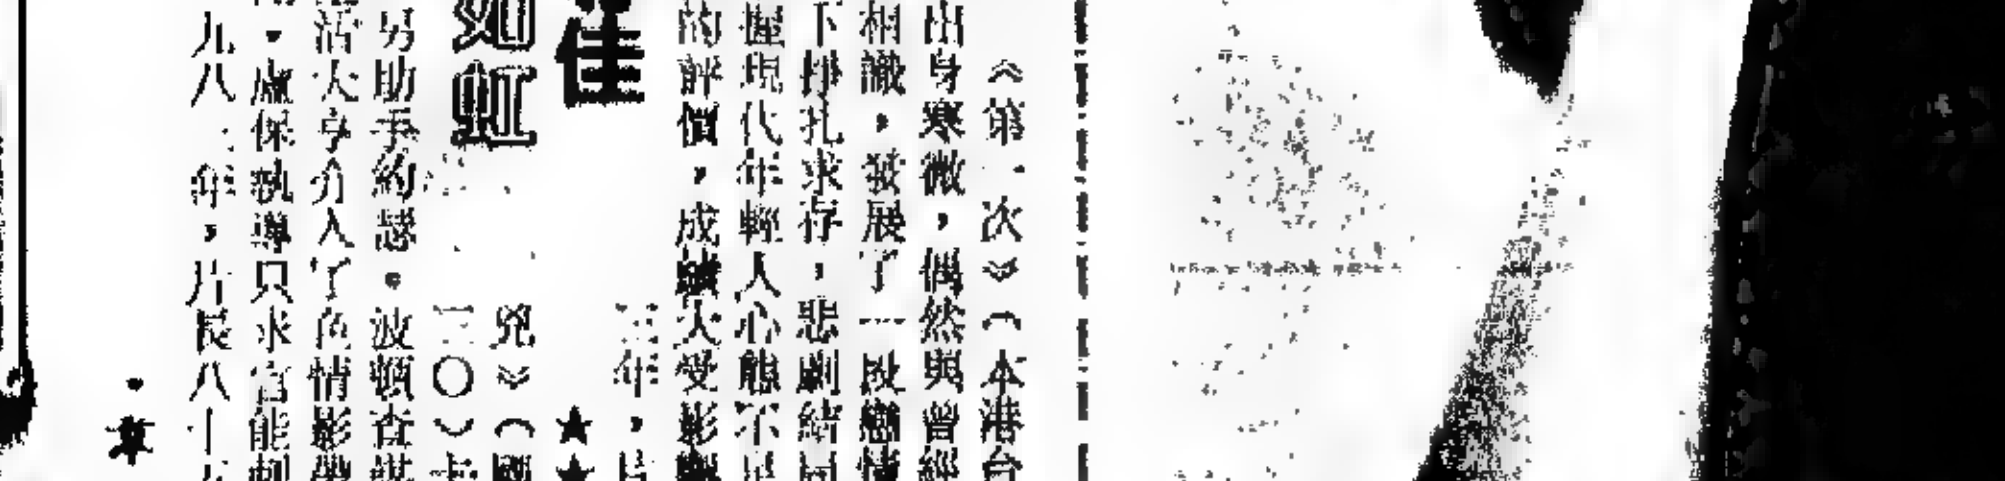 《第一次》（本港台
出身寒微，偶然與曾經
相識，發展了一段戀情
下掙扎求存，悲劇結局
握現代年輕人心態不足
的評價，成績大受影響
三年，片
佳
★★
兇》（國
如虹
三〇）卡
另助手約瑟。波頓查謀
活大亨介入了色情影帶
，盧保執導只求官能刺
九八一年，片長八十五
·章